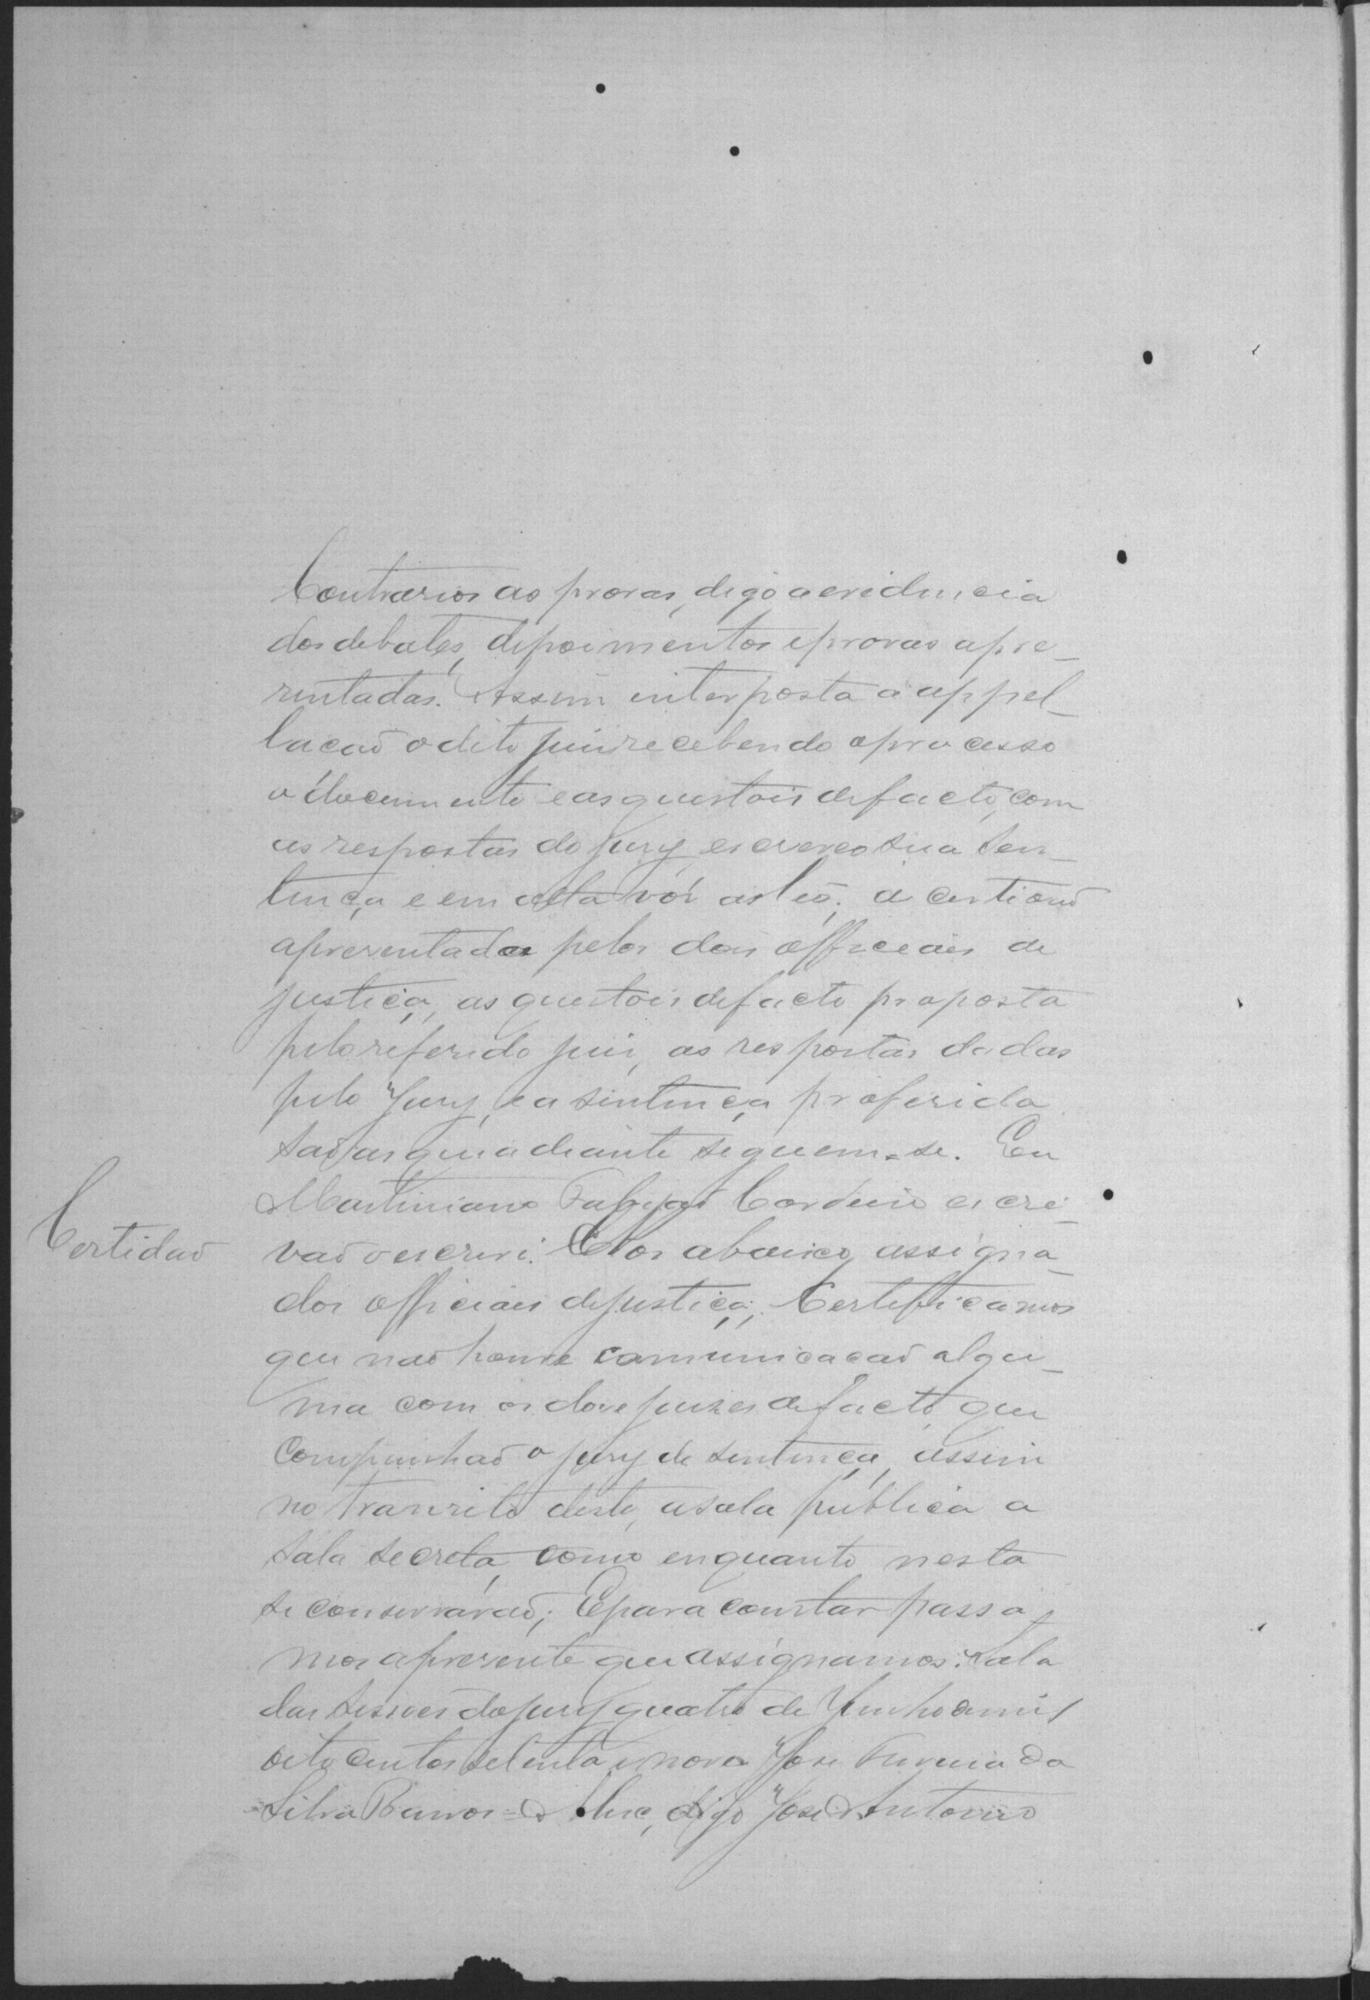 Contrarios as provas, digo a evidencia
dos debates, depoimentos e provas apre_
sentadas. Assim interposta a appel_
lacaõ o dito juis recebendo o processo
o documento e as questois de facto, com
as respostas do jury escreveo sua Sen_
tença e em alta vós as leo; a certidaõ
apresentada pelos dois officiais de
justiça, as questois de facto proposta
pelo referido juis, as respostas dadas
pelo Jury, e a sintença proferida
saõ as que adiante seguem-se. Eu
Martiniano Cordeiro escri_
Certidaõ
vaõ o escrivi. Nos abaixo assigna_
dos officiais de justiça; Certificamos
que naõ houve comunicacaõ algu_
ma com os dose juizes de facto, que
Compunhaõ o jury de sentença, assim
no tranzito desta, a sala publica a
Sala secreta, como enquanto nesta
se conservaraõ; E para constar passa_
mos a prezente que assignamos. Sala
das Sessoes do jury quatro de Junho de mil
oito centos setenta e nove Jose Ferreira da
Silva Barros = digo Jose Antonio